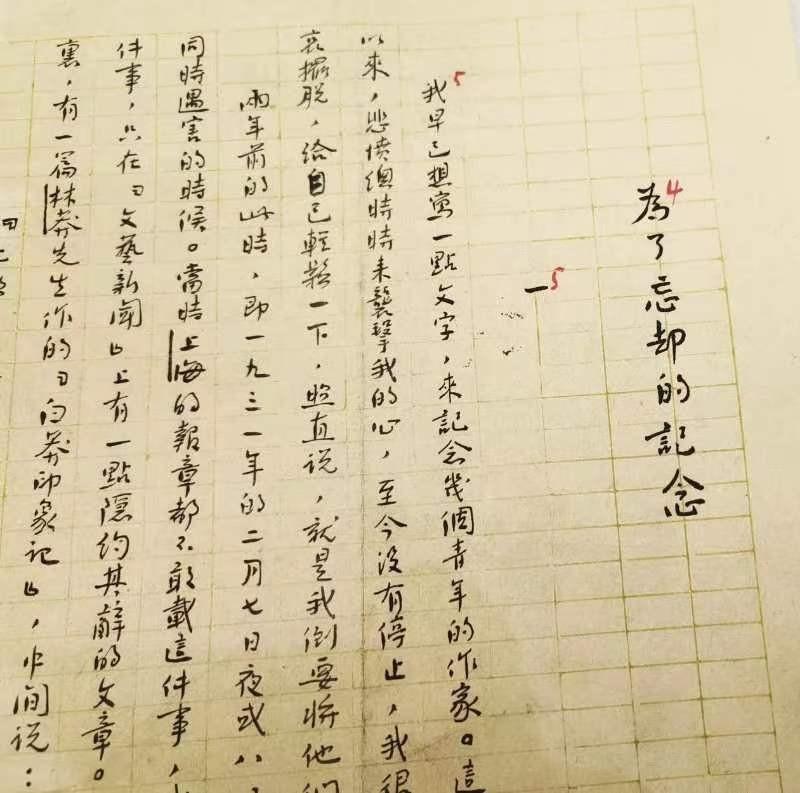 為了忘却的記念
4
一
5
我早已想寫一點文字，來記念幾個青年的作家。這
5
以來，悲憤總時時来襲擊我的心，至今没有停止，我很
哀擺脱，給自己輕鬆一下，照直说，就是我倒要將他們
兩年前的此時，即一九三一年的二月七日夜或八
同時遇害的時候。當時上海的報章都不敢載這件事，
件事，只在『文藝新聞』上有一點隱約其辭的文章。
裏，有一篇林莽先生作的『白莽印象记』，中间说：